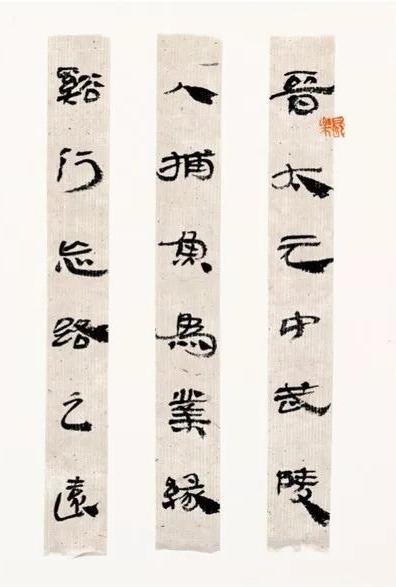 晉太元中武陵
人捕魚為業緣
谿行忘路之遠